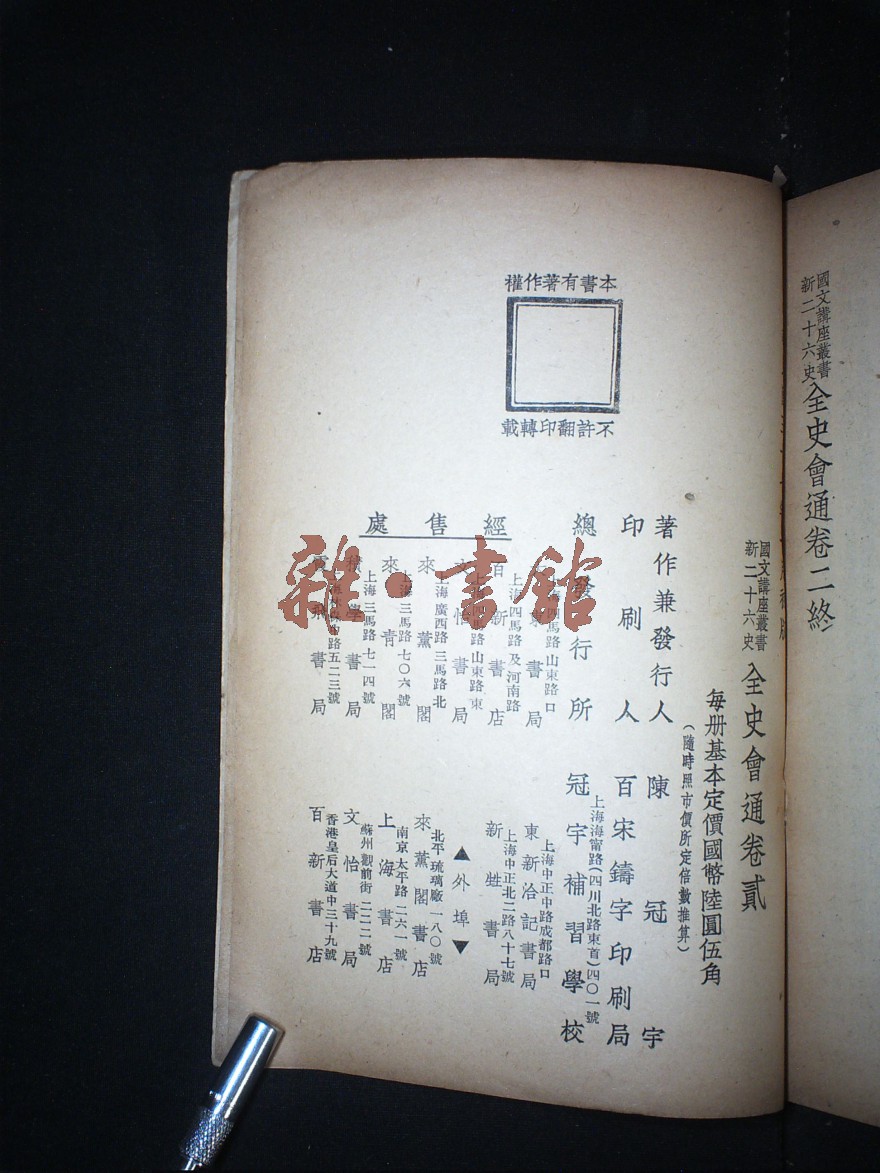 國文講座叢書
新二十六史
全史會通卷二終
國文講座叢書
新二十六史
全史會通卷貳
每册基本定價國幣陸圓伍角
(隨時照市價所定倍數推算)
著作兼發行人 陳冠宇
印刷人 百宋鑄字印刷局
上海海甯路(四川北路東首)四〇一號
總發行所 冠宇補習學校
本書有著作權
不許翻印轉載
經售處
書局
上海四馬路山東路口
百新書店
上海四馬路及河南路
文怡書局
山東路東
來薰閣
上海廣西路三馬路北
來青閣
上海三馬路七〇六號
積學書局
上海三馬路七一四號
書局
路五二三號
東新洽記書局
上海中正中路成都路口
新甡書局
上海中正北二路八十七號
▲外埠▼
來薰閣書店
北平琉璃廠一八〇號
上海書店
南京太平路二六一號
文怡書局
蘇州觀前街二二二號
百新書店
香港皇后大道中三十九號
雜·書館